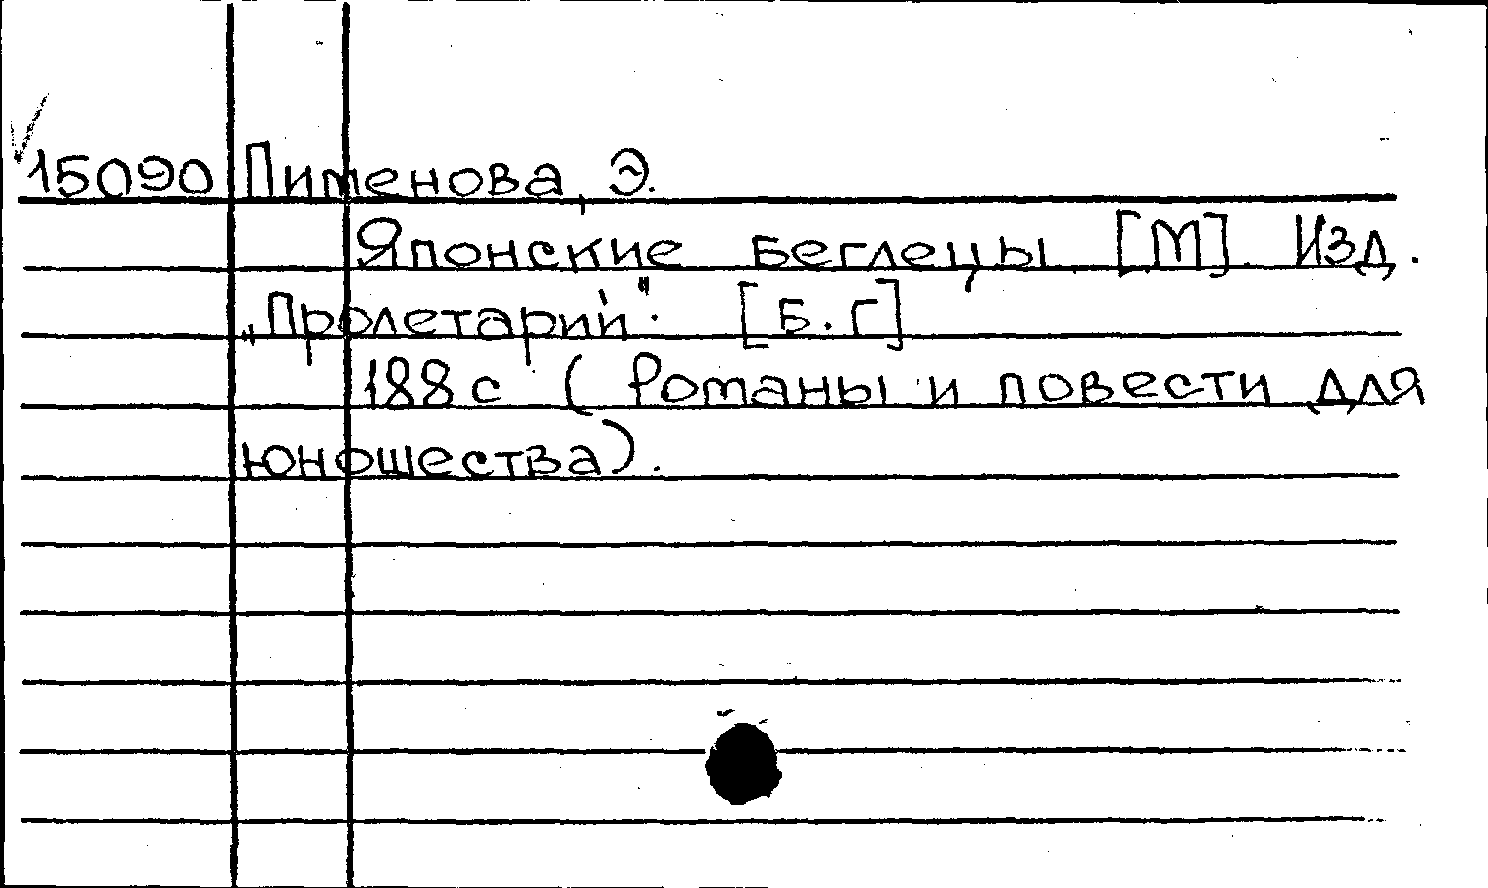 15090 Пименова, Э.
Японские беглецы [М]. Изд.
„Пролетарий". [Б.г]
188 с ( Романы и повести для
юношества).